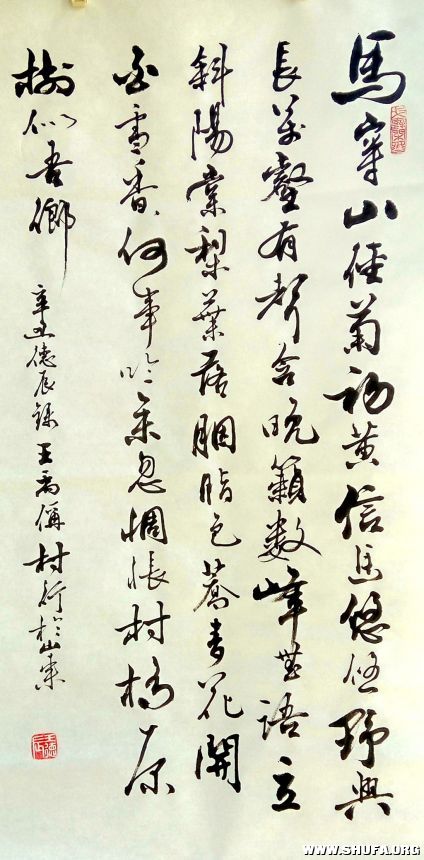 馬穿山徑菊初黃信馬悠悠野興
長萬壑有聲含晚籟數峰無語立
斜陽棠梨葉落胭脂色蕎麥花開
白雪香何事吟余忽惆悵村橋原
樹似吾鄉
辛丑德辰錄王禹偁村行於山東
WWW.SHUFA.ORG